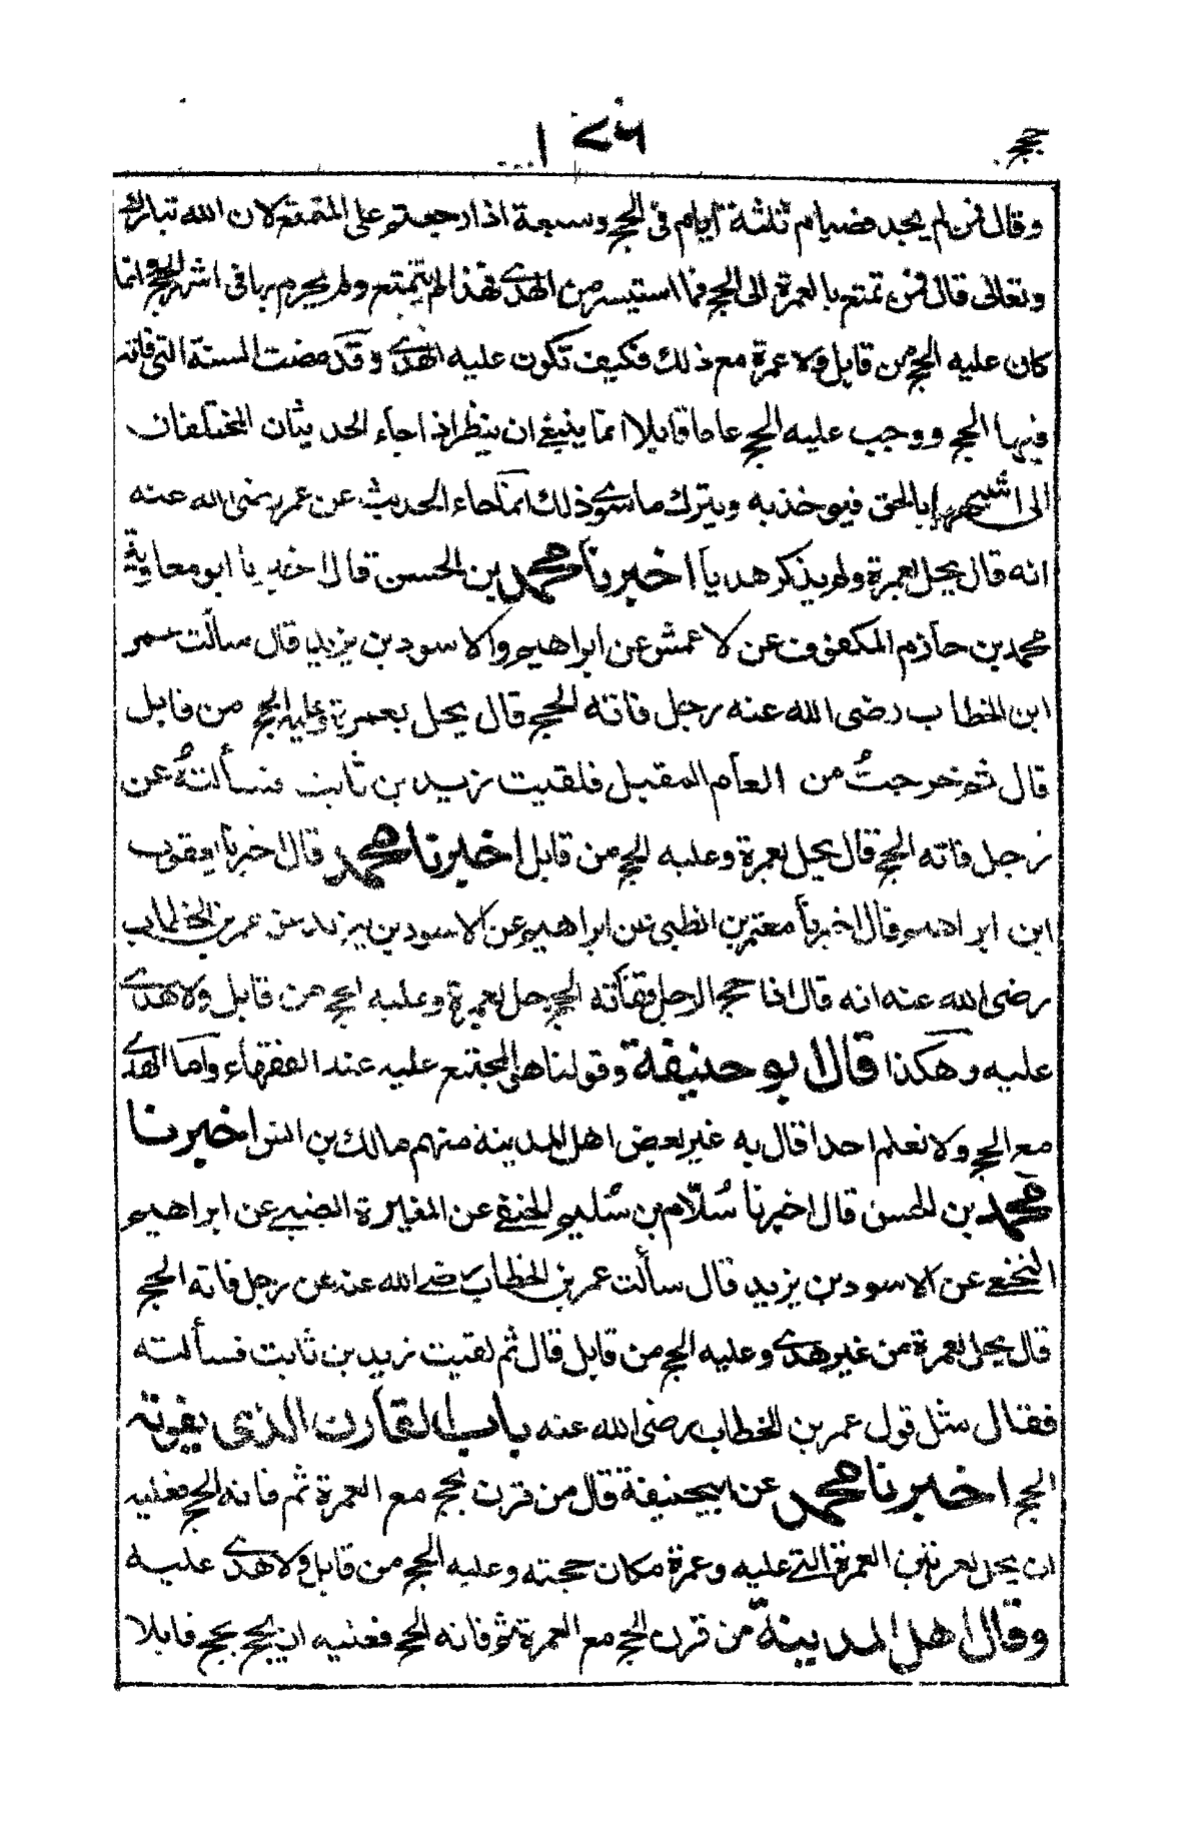 حج ١٧٦
وقال فمن لم يجد فصيام ثلثة أيام فى الحج وسبعة اذا رجعتم على المتمتع لان الله تبارك
وتعالى قال فمن تمتع بالعمرة الى الحج فما استيسر من الهدى فهذا لم يتمتع ولم يحرم بها فى اشهر الحج وانما
كان عليه الحج من قابل ولا عمرة مع ذلك فكيف تكون عليه الهدى وقد مضت السنة التى فاته
فيها الحج ووجب عليه الحج عاما قابلا انما ينبغى ان ينظر اذا جاء الحديثان المختلفان
الى اشبههما بالحق فيوخذ به ويترك ما سوى ذلك انما جاء الحديث عن عمر رضى الله عنه
انه قال يحل بعمرة ولم يذكر هديا اخبرنا محمد بن الحسن قال اخبرنا ابو معاوية
محمد بن حازم المكفوف عن الاعمش عن ابراهيم والاسود بن يزيد قال سالت عمر
ابن الخطاب رضى الله عنه رجل فاته الحج قال يحل بعمرة وعليه الحج من قابل
قال ثم خرجتُ من العام المقبل فلقيت زيد بن ثابت فسألتهُ عن
رجل فاته الحج قال يحل بعمرة وعليه الحج من قابل اخبرنا محمد قال اخبرنا يعقوب
ابن ابراهيم قال اخبرنا معتمر بن عن ابراهيم عن الاسود بن يزيد عن عمر بن الخطاب
رضى الله عنه انه قال اذا حج الرجل ففاته الحج حل بعمرة وعليه الحج من قابل ولا هدى
عليه وهكذا قال ابو حنيفة وقولنا هو المجتمع عليه عند الفقهاء واما الهدى
مع الحج ولا نعلم احدا قال به غير بعض اهل المدينة منهم مالك بن انس اخبرنا
محمد بن الحسن قال اخبرنا سُلّام بن سُليم الحنفى عن المغيرة الضبى عن ابراهيم
النخعى عن الاسود بن يزيد قال سألت عمر بن الخطاب رضى الله عنه عن رجل فاته الحج
قال يحل بعمرة من غير هدى وعليه الحج من قابل قال ثم لقيت زيد بن ثابت فسألته
فقال مثل قول عمر بن الخطاب رضى الله عنه باب القارن الذى يفوته
الحج اخبرنا محمد عن ابيحنيفة قال من قرن بحج مع العمرة ثم فاته الحج فعليه
ان يحل بعمرتين العمرة التى عليه وعمرة مكان حجته وعليه الحج من قابل ولا هدى عليه
وقال اهل المدينة من قرن الحج مع العمرة ثم فاته الحج فعليه ان يحج بحج قابلا